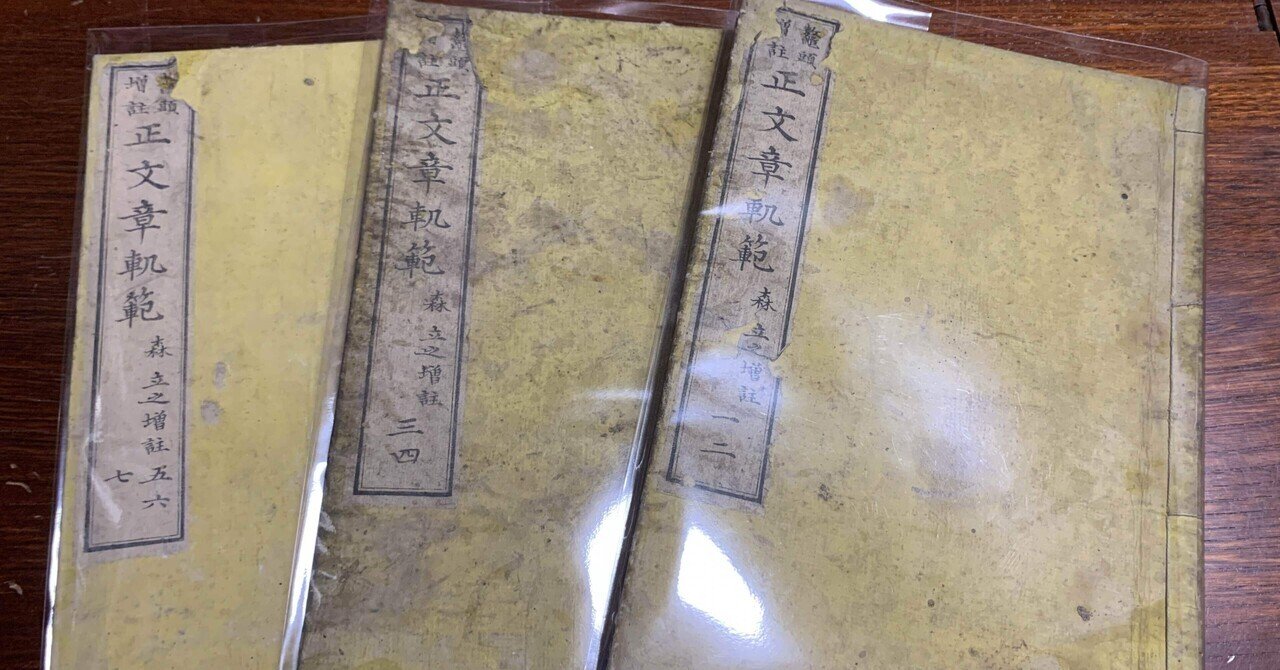 鼇頭
增註
正文章軌範
森立之增註
一二
頭
註
正文章軌範
森立之增註
三四
頭
增註
正文章軌範
森立之增註
五六
七